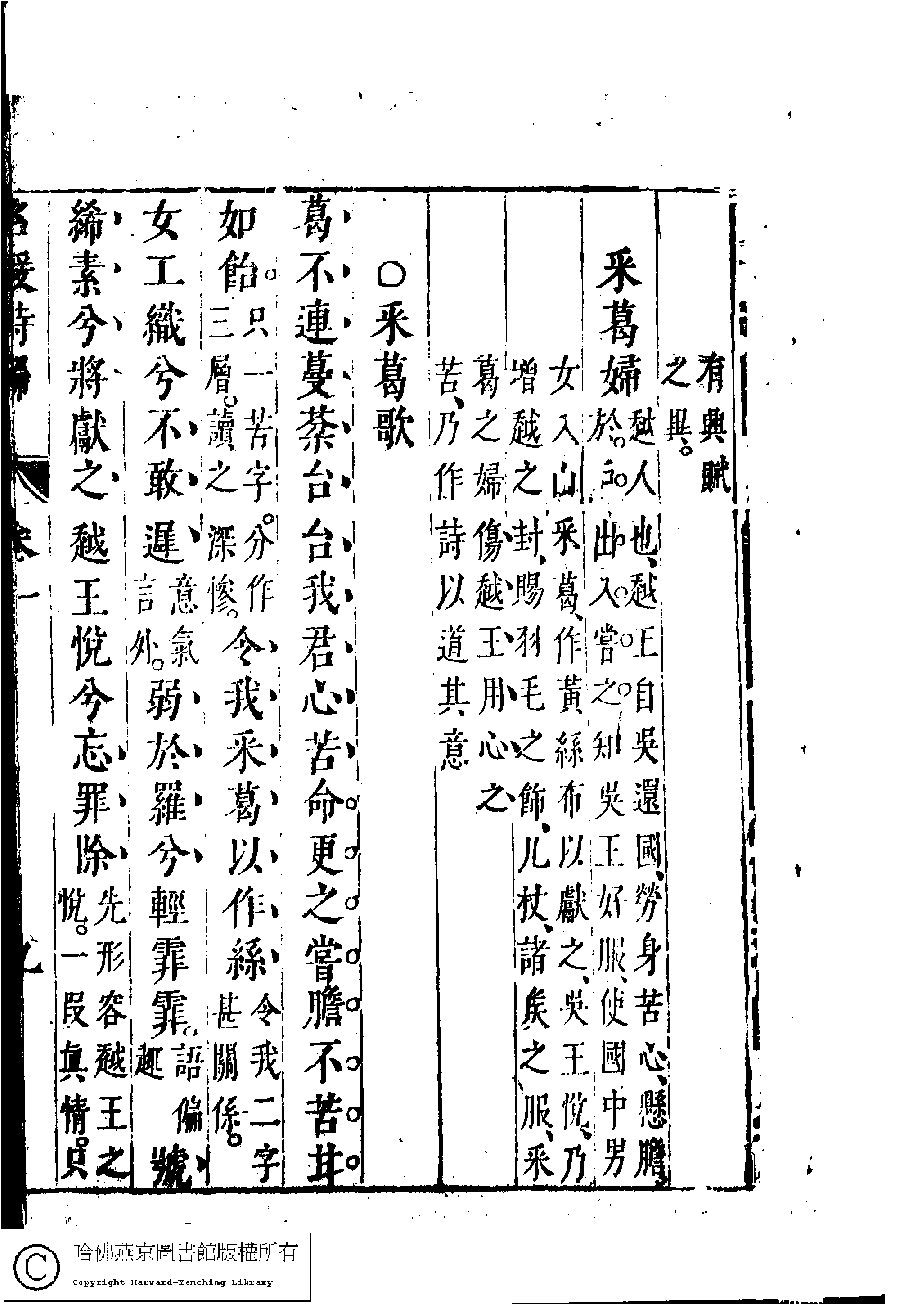 有興賦
之異。
采葛婦
越人也、越王自吳還國、勞身苦心、懸膽
於戶。出入嘗之。知吳王好服、使國中男
女入山采葛、作黃絲布以獻之、吳王悅、乃
增越之封、賜羽毛之飾、几杖、諸矦之服、采
葛之婦、傷越王用心之
苦、乃作詩以道其意
○采葛歌
葛不連蔓棻台台我君心苦命更之嘗膽不苦甘
如飴。只一苦字。分作三層。讀之深慘。令我采葛以作絲令我二字甚關係。
女工織兮不敢遲意氣言外。弱於羅兮輕霏霏。語偏趣號
絺素兮將獻之越王悅兮忘罪除先形容越王之悅。一段真情。只
名媛詩歸
卷一
九
哈佛燕京圖書館版權所有
Copyright Harvard-Yenching Library